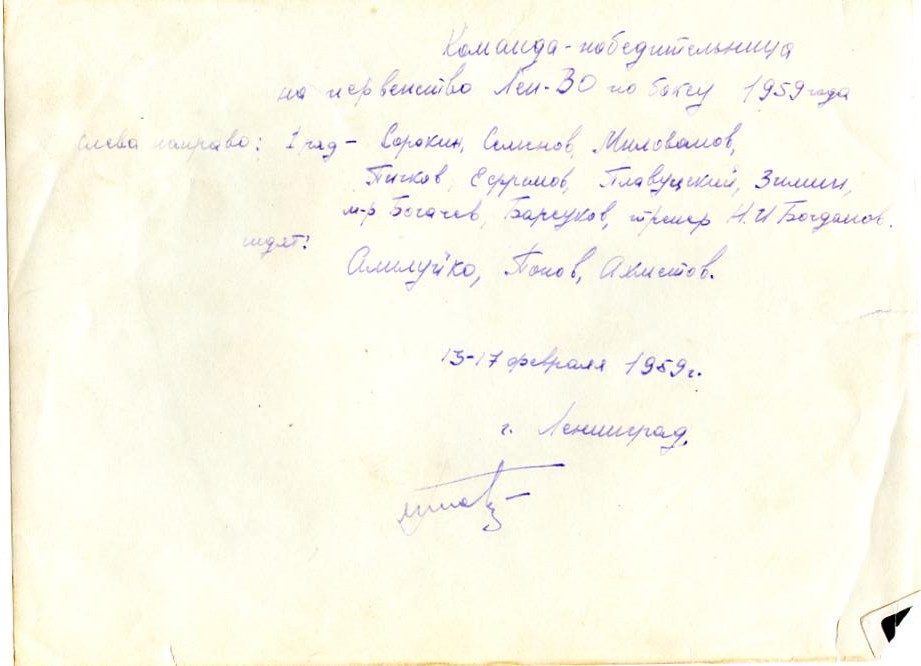 Команда-победительница
на первенство Лен-ВО по боксу 1959 года
слева направо: 1 ряд - Сорокин, Семёнов, Милованов,
Пичков, Ефримов, Плавуцкий, Зимин,
м-р Богачев, Барсуков, тренер Н.И Богданов.
сидят:
Алилуйко, Попов, Ахметов.
13-17 февраля 1959 г.
г. Ленинград.